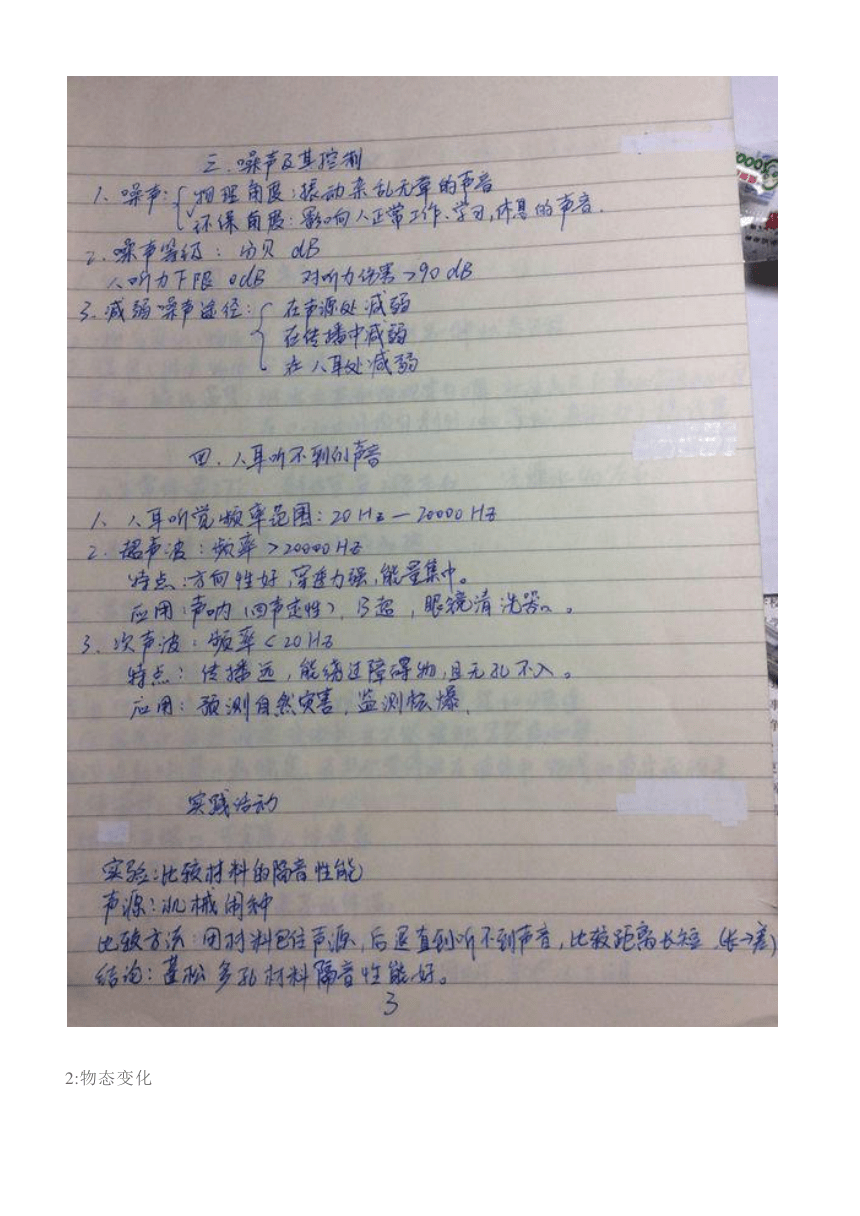 三.噪声及其控制
1、噪声:{物理角度:振动杂乱无章的声音
环保角度:影响人正常工作、学习,休息的声音.
2.噪声等级:分贝 dB
人听力下限 0dB 对听力伤害>90 dB
3、减弱噪声途径:{在声源处减弱
在传播中减弱
在人耳处减弱
四.人耳听不到的声音
1、人耳听觉频率范围:20Hz—20000Hz
2.超声波:频率>20000Hz
特点:方向性好,穿透力强,能量集中。
应用:声呐(回声定性),B超,眼镜清洗器。
3、次声波:频率<20Hz
特点:传播远,能绕过障碍物,且无孔不入。
应用:预测自然灾害,监测核爆,
实践活动
实验:比较材料的隔音性能
声源:机械闹钟
比较方法:用材料包住声源,后退直到听不到声音,比较距离长短(长→差)
结论:蓬松多孔材料隔音性能好。
3
2:物态变化